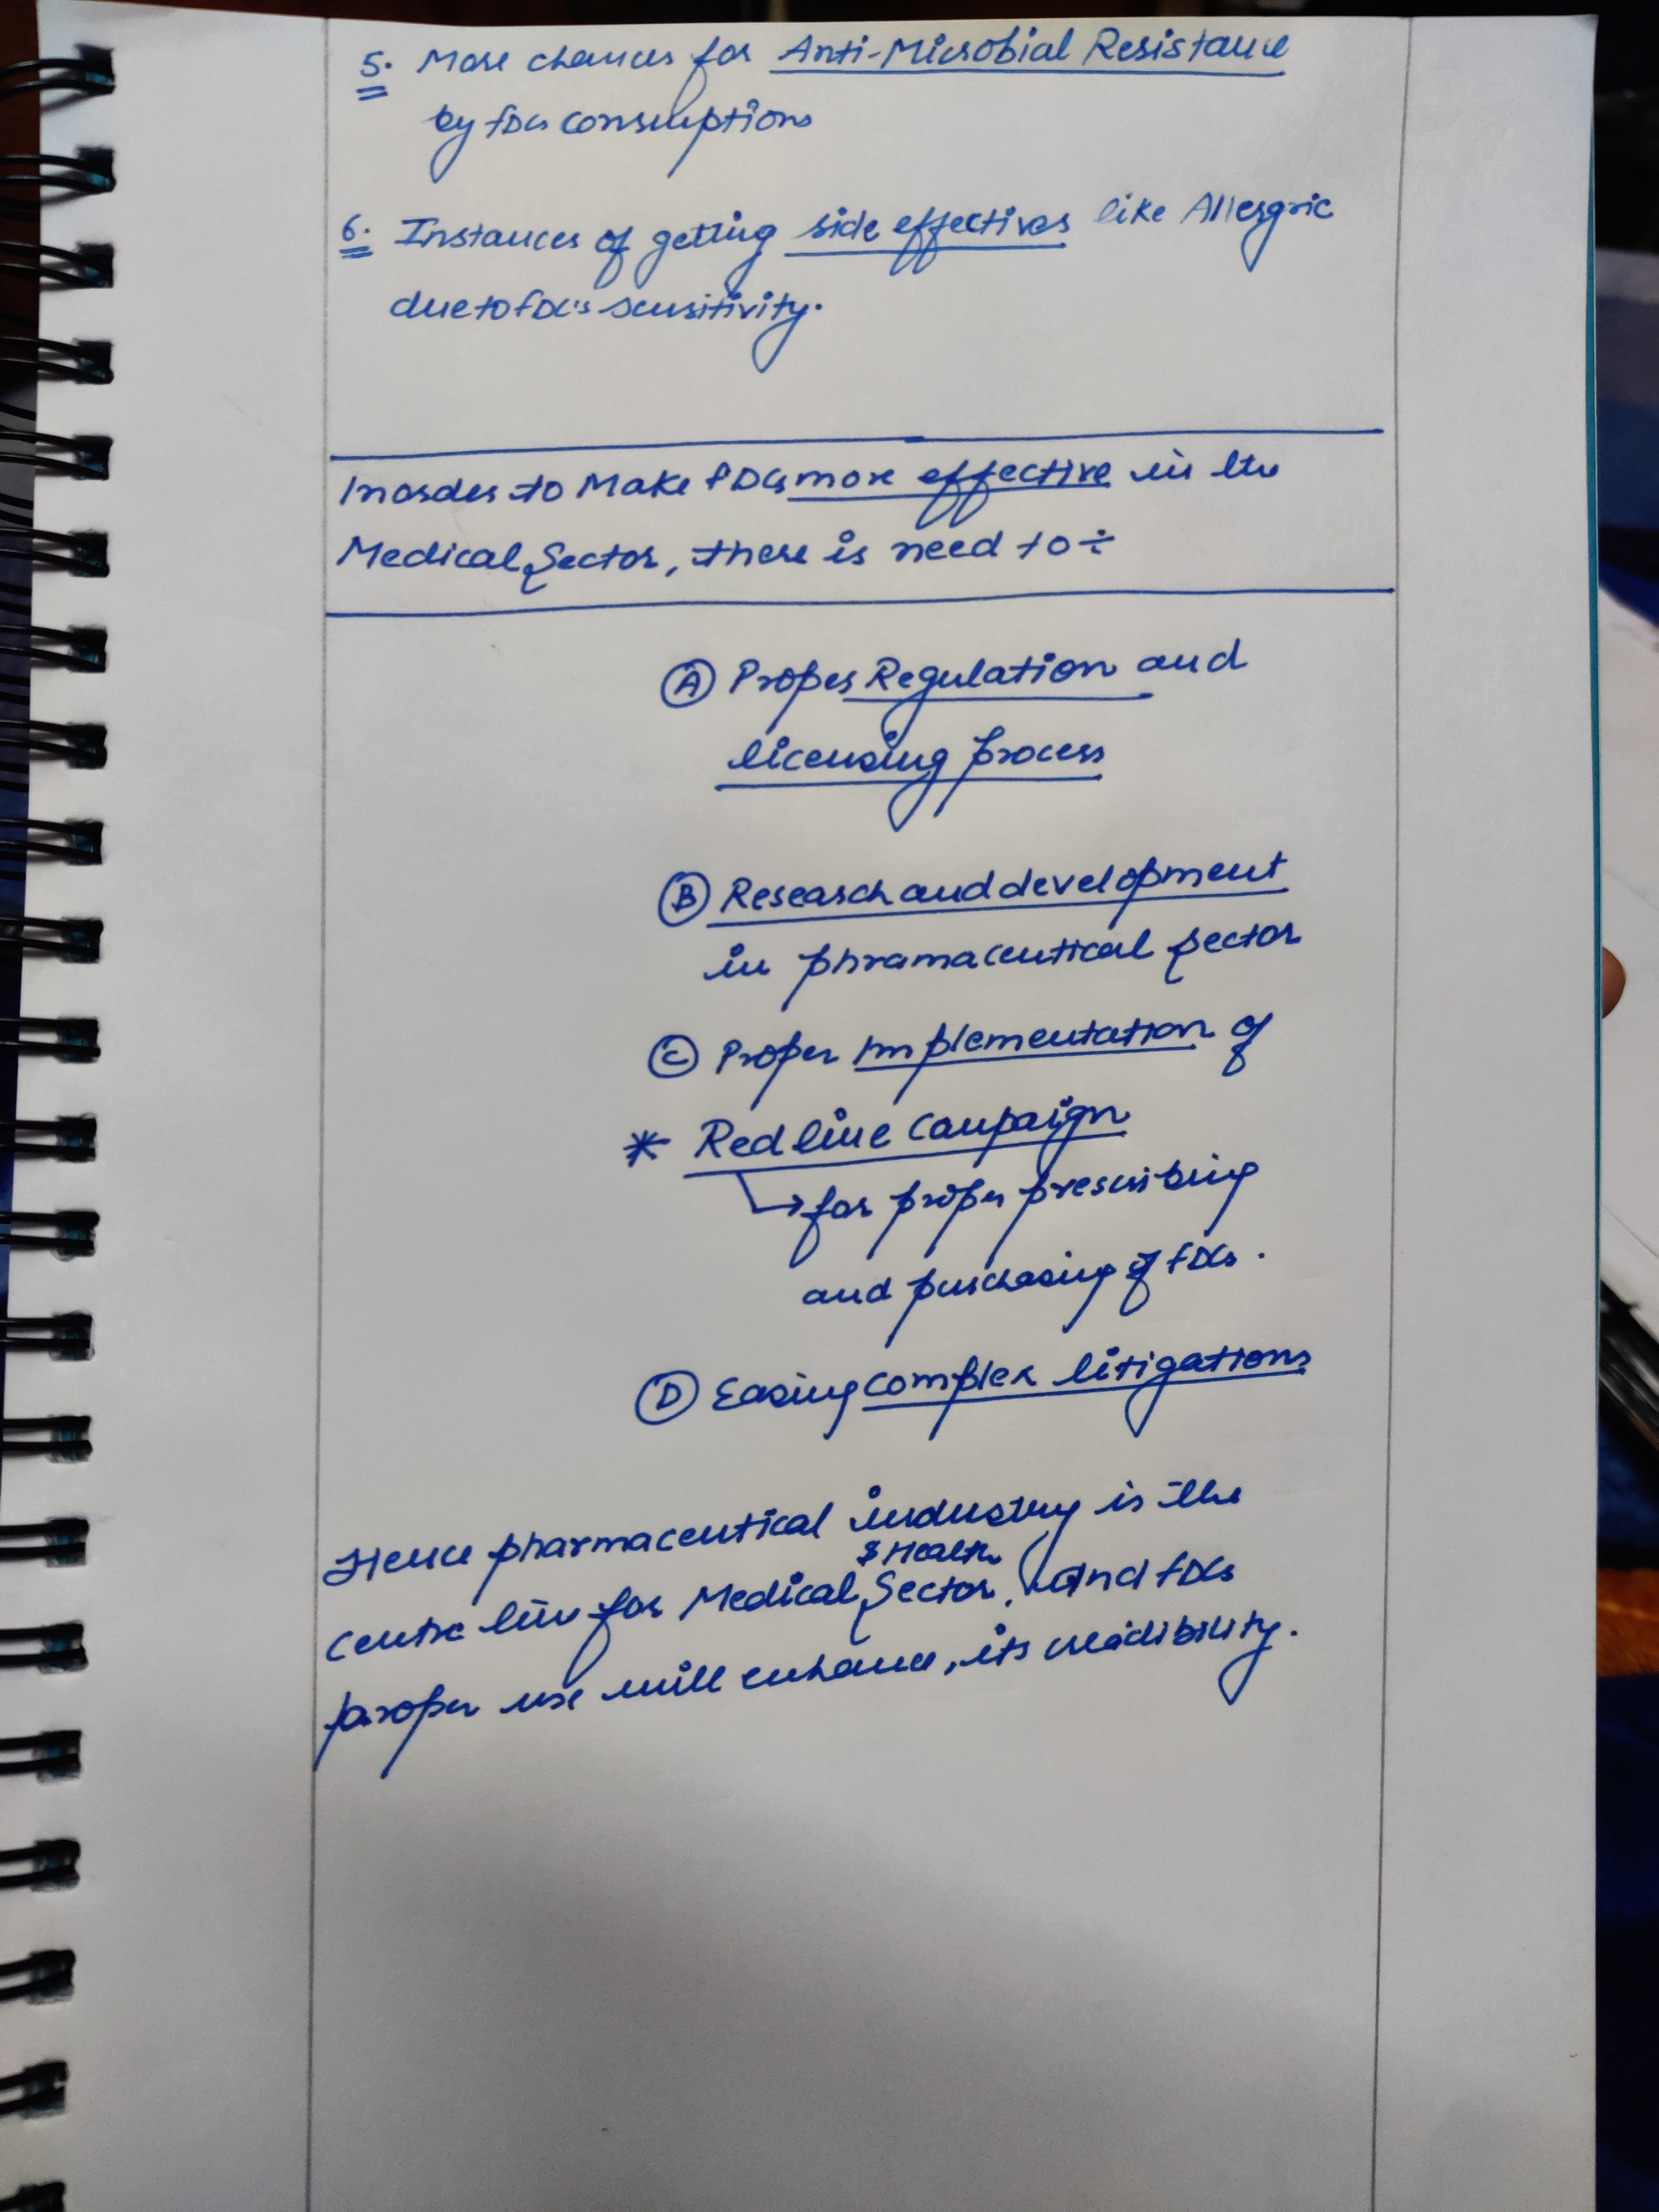 5. More chances for Anti-Microbial Resistance
by FDCs consumptions
6. Instances of getting side effectives like Allergric
due to FDC's sensitivity.
Inorder to Make FDCs more effective in the
Medical Sector, there is need to ÷
Ⓐ Proper Regulation and
licensing process
Ⓑ Research and development
in phramaceutical sector
Ⓒ Proper Implementation of
* Redline Campaign
→ for proper prescribing
and purchasing of FDCs.
Ⓓ Easing complex litigations
Hence pharmaceutical industry is the
& Health
centre line for Medical Sector, and FDCs
proper use will enhance, its credibility.